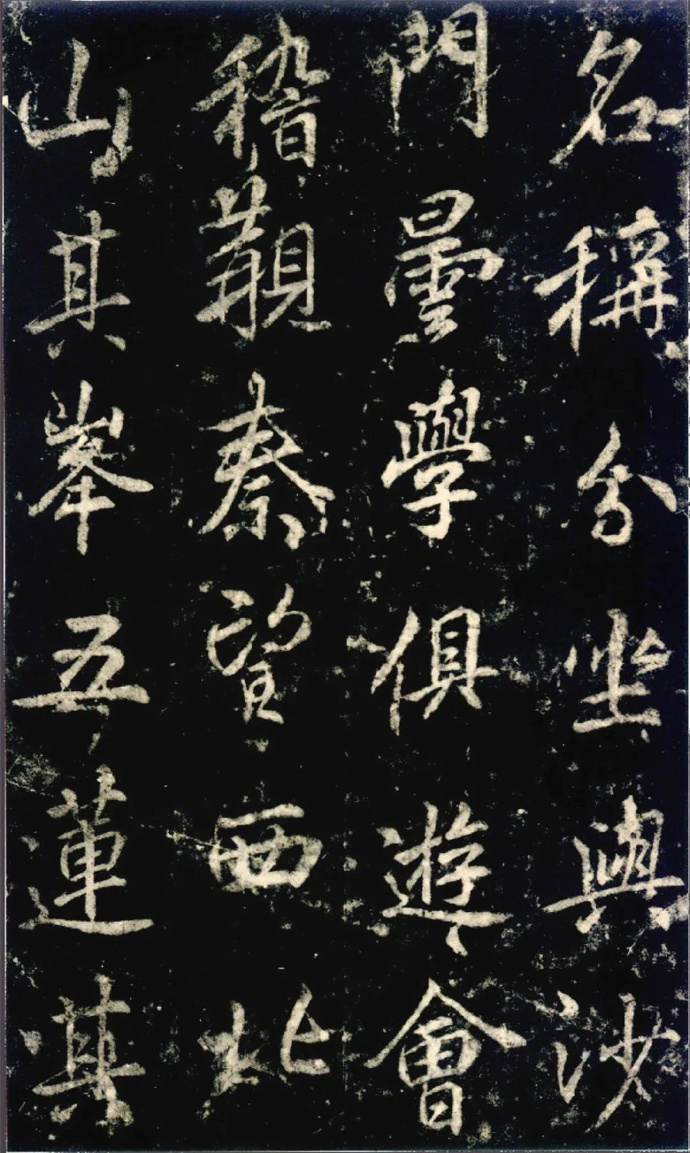 名稱分坐與沙
門曇學俱遊會
稽覯秦望西北
山其峯五蓮其